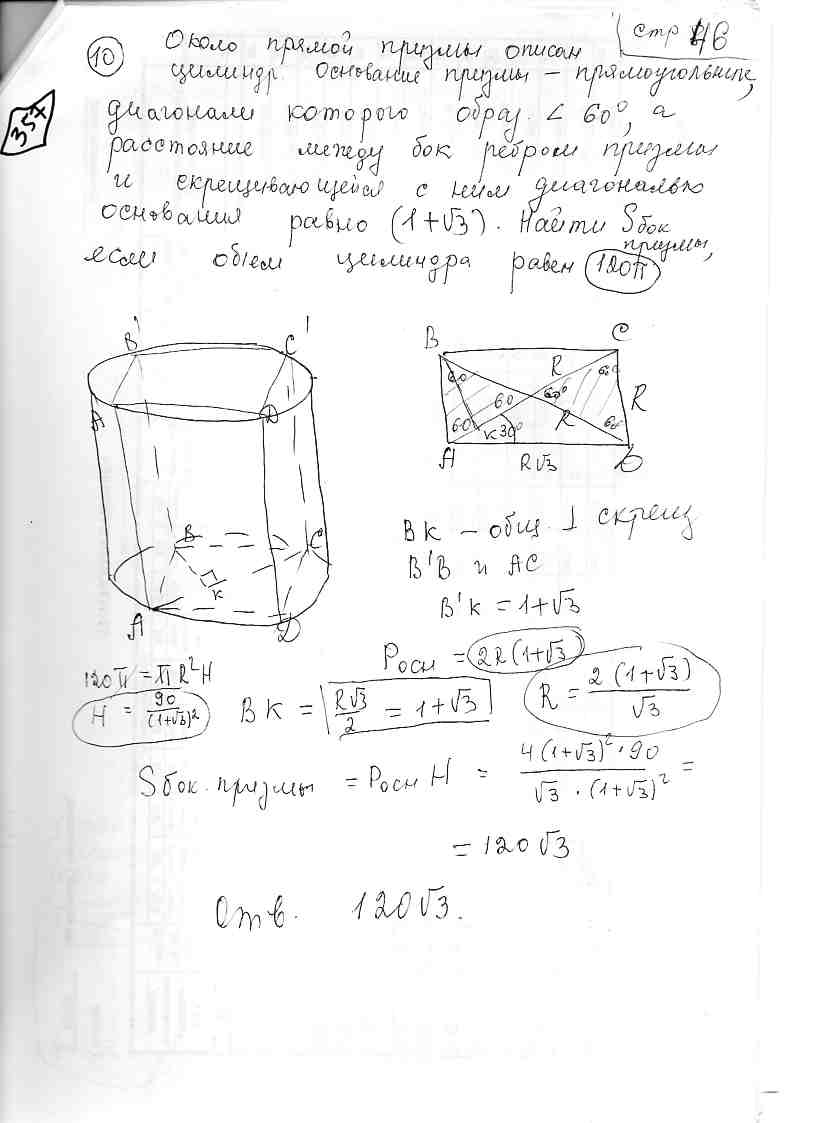 стр 46
10
Около прямой призмы описан
цилиндр. Основание призмы – прямоугольник,
диагонали которого образ. ∠ 60°, а
расстояние между бок ребром призмы
и скрещивающейся с ним диагональю
основания равно (1+√3). Найти Sбок
призмы,
если объем цилиндра равен 120π
354
B' C'
A' D
B C
K
A D
B C
60 R 60
60 60° R
60 K 30° R 60
A D
R√3
BK – общ. ⊥ скрещ
B'B и AC
B'K = 1+√3
Pосн = 2R(1+√3)
120π = πR²H
H = 90/(1+√3)²
BK = R√3/2 = 1+√3
R = 2(1+√3)/√3
Sбок. призмы = Pосн H = 4(1+√3)²·90/√3·(1+√3)² =
= 120√3
Отв. 120√3.